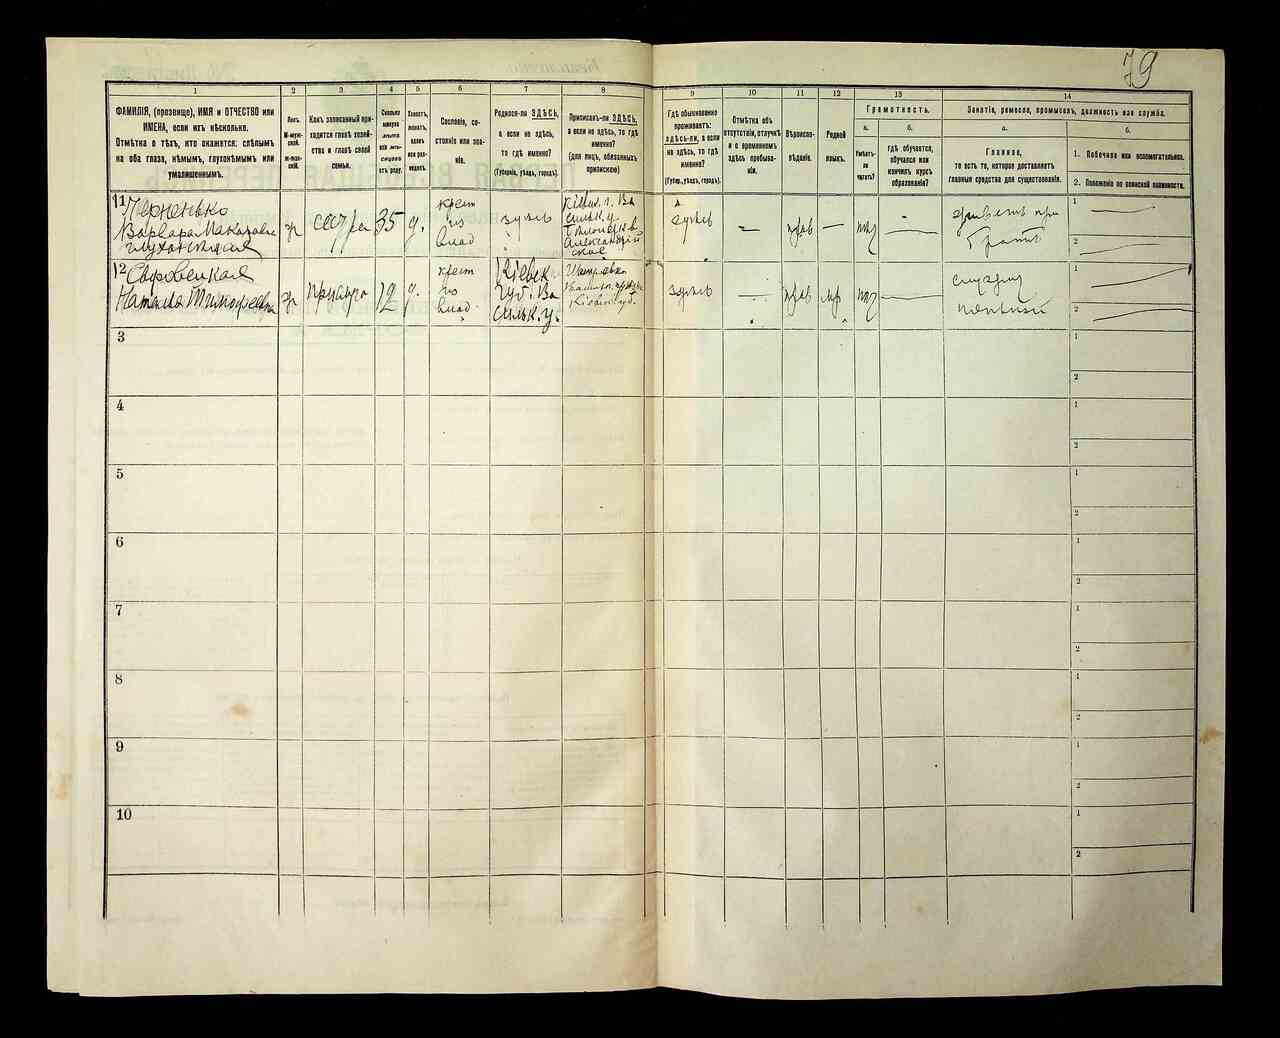 79
1 2 3 4 5 6 7 8 9 10 11 12 13 14
ФАМИЛІЯ, (прозвище), ИМЯ и ОТЧЕСТВО или
ИМЕНА, если ихъ нѣсколько.
Отмѣтка о тѣхъ, кто окажется: слѣпымъ
на оба глаза, нѣмымъ, глухонѣмымъ или
умалишеннымъ.
Полъ.
М-муж-
ской.
ж-жен-
скій.
Какъ записанный при-
ходится главѣ хозяй-
ства и главѣ своей
семьи.
Сколько
минуло
лѣтъ
или мѣ-
сяцевъ
отъ роду.
Холостъ,
женатъ,
вдовъ
или раз-
веденъ.
Сословіе, со-
стояніе или зва-
ніе.
Родился-ли ЗДѢСЬ,
а если не здѣсь,
то гдѣ именно?
(Губернія, уѣздъ, городъ).
Приписанъ-ли ЗДѢСЬ,
а если не здѣсь, то гдѣ
именно?
(для лицъ, обязанныхъ
припискою)
Гдѣ обыкновенно
проживаетъ:
здѣсь-ли, а если
не здѣсь, то гдѣ
именно?
(Губерн., уѣздъ, городъ).
Отмѣтка объ
отсутствіи, отлучкѣ
и о временномъ
здѣсь пребыва-
ніи.
Вѣроиспо-
вѣданіе.
Родной
языкъ.
Грамотность.
а.
Умѣетъ-
ли
читать?
б.
гдѣ обучается,
обучался или
кончилъ курсъ
образованія?
Занятіе, ремесло, промыселъ, должность или служба.
а.
Главное,
то есть то, которое доставляетъ
главныя средства для существованія.
б.
1. Побочное или вспомогательное.
2. Положеніе по воинской повинности.
11
Варвара Макаровна
ж сестра 35 д. крест
из
влад
здѣсь
Кіевск. г. Ва
сильк. у.
Александрій
ское
здѣсь — прав — нѣт —
живетъ при
братѣ
1
2
12
Наталія Тимофеевна
ж прислуга 12 д. крест
из
влад.
Кіевск
губ. Ва
сильк. у.
Кіевск губ.
здѣсь — прав мр нѣт —
1
2
3
1
2
4
1
2
5
1
2
6
1
2
7
1
2
8
1
2
9
1
2
10
1
2